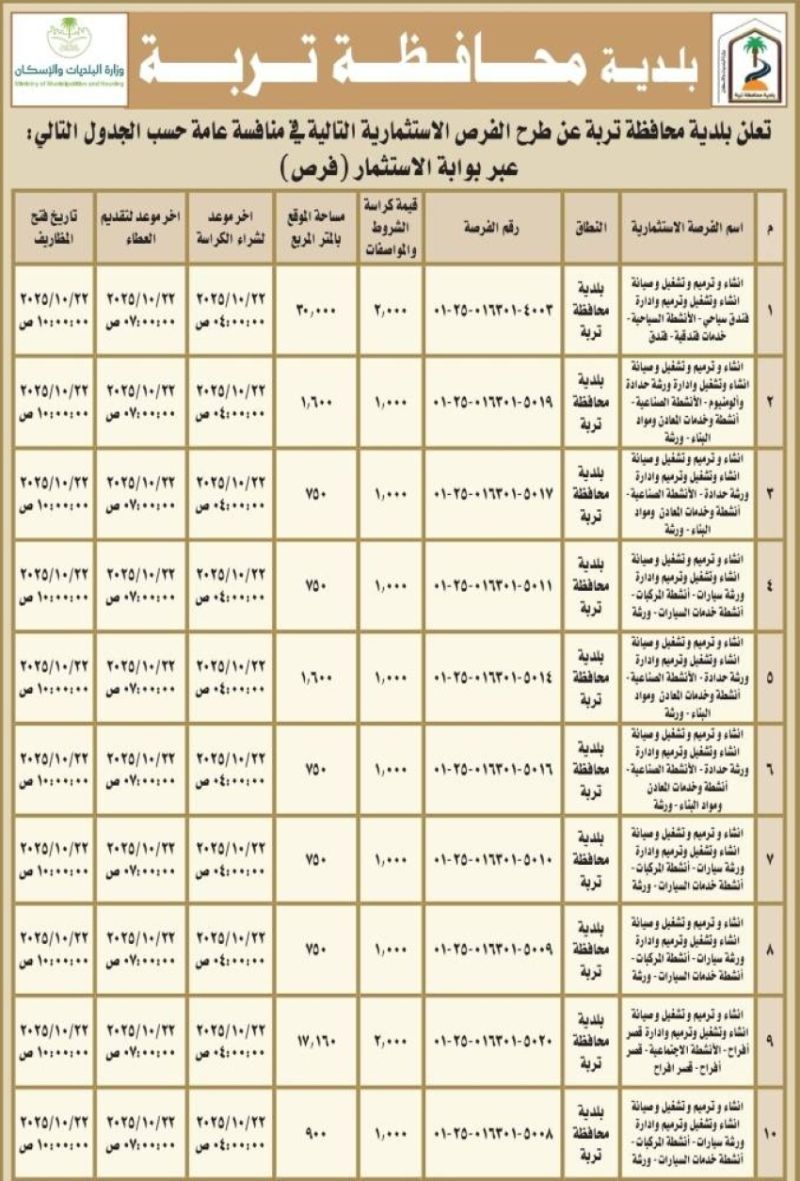 بلدية محافظة تربة
وزارة البلديات والإسكان
Ministry of Municipalities and Housing
بلدية محافظة تربة
تعلن بلدية محافظة تربة عن طرح الفرص الاستثمارية التالية في منافسة عامة حسب الجدول التالي:
عبر بوابة الاستثمار (فرص)
م | اسم الفرصة الاستثمارية | النطاق | رقم الفرصة | قيمة كراسة الشروط والمواصفات | مساحة الموقع بالمتر المربع | اخر موعد لشراء الكراسة | اخر موعد لتقديم العطاء | تاريخ فتح المظاريف
١ | انشاء و ترميم و تشغيل و صيانة انشاء وتشغيل وترميم وادارة فندق سياحي - الأنشطة السياحية - خدمات فندقية - فندق | بلدية محافظة تربة | ٠١-٢٥-٠١٦٣٠١-٤٠٠٣ | ٢,٠٠٠ | ٣٠,٠٠٠ | ٢٠٢٥/١٠/٢٢ ٠٤:٠٠:٠٠ ص | ٢٠٢٥/١٠/٢٢ ٠٧:٠٠:٠٠ ص | ٢٠٢٥/١٠/٢٢ ١٠:٠٠:٠٠ ص
٢ | انشاء و ترميم و تشغيل و صيانة انشاء وتشغيل وادارة ورشة حدادة وألومنيوم - الأنشطة الصناعية - أنشطة وخدمات المعادن ومواد البناء - ورشة | بلدية محافظة تربة | ٠١-٢٥-٠١٦٣٠١-٥٠١٩ | ١,٠٠٠ | ١,٦٠٠ | ٢٠٢٥/١٠/٢٢ ٠٤:٠٠:٠٠ ص | ٢٠٢٥/١٠/٢٢ ٠٧:٠٠:٠٠ ص | ٢٠٢٥/١٠/٢٢ ١٠:٠٠:٠٠ ص
٣ | انشاء و ترميم و تشغيل و صيانة انشاء وتشغيل وترميم وادارة ورشة حدادة - الأنشطة الصناعية - أنشطة وخدمات المعادن ومواد البناء - ورشة | بلدية محافظة تربة | ٠١-٢٥-٠١٦٣٠١-٥٠١٧ | ١,٠٠٠ | ٧٥٠ | ٢٠٢٥/١٠/٢٢ ٠٤:٠٠:٠٠ ص | ٢٠٢٥/١٠/٢٢ ٠٧:٠٠:٠٠ ص | ٢٠٢٥/١٠/٢٢ ١٠:٠٠:٠٠ ص
٤ | انشاء و ترميم و تشغيل و صيانة انشاء وتشغيل وترميم وادارة ورشة سيارات - أنشطة المركبات - أنشطة خدمات السيارات - ورشة | بلدية محافظة تربة | ٠١-٢٥-٠١٦٣٠١-٥٠١١ | ١,٠٠٠ | ٧٥٠ | ٢٠٢٥/١٠/٢٢ ٠٤:٠٠:٠٠ ص | ٢٠٢٥/١٠/٢٢ ٠٧:٠٠:٠٠ ص | ٢٠٢٥/١٠/٢٢ ١٠:٠٠:٠٠ ص
٥ | انشاء و ترميم و تشغيل و صيانة انشاء وتشغيل وترميم وادارة ورشة حدادة - الأنشطة الصناعية - أنشطة وخدمات المعادن ومواد البناء - ورشة | بلدية محافظة تربة | ٠١-٢٥-٠١٦٣٠١-٥٠١٤ | ١,٠٠٠ | ١,٦٠٠ | ٢٠٢٥/١٠/٢٢ ٠٤:٠٠:٠٠ ص | ٢٠٢٥/١٠/٢٢ ٠٧:٠٠:٠٠ ص | ٢٠٢٥/١٠/٢٢ ١٠:٠٠:٠٠ ص
٦ | انشاء و ترميم و تشغيل و صيانة انشاء وتشغيل وترميم وادارة ورشة حدادة - الأنشطة الصناعية - أنشطة وخدمات المعادن ومواد البناء - ورشة | بلدية محافظة تربة | ٠١-٢٥-٠١٦٣٠١-٥٠١٦ | ١,٠٠٠ | ٧٥٠ | ٢٠٢٥/١٠/٢٢ ٠٤:٠٠:٠٠ ص | ٢٠٢٥/١٠/٢٢ ٠٧:٠٠:٠٠ ص | ٢٠٢٥/١٠/٢٢ ١٠:٠٠:٠٠ ص
٧ | انشاء و ترميم و تشغيل و صيانة انشاء وتشغيل وترميم وادارة ورشة سيارات - أنشطة المركبات - أنشطة خدمات السيارات - ورشة | بلدية محافظة تربة | ٠١-٢٥-٠١٦٣٠١-٥٠١٠ | ١,٠٠٠ | ٧٥٠ | ٢٠٢٥/١٠/٢٢ ٠٤:٠٠:٠٠ ص | ٢٠٢٥/١٠/٢٢ ٠٧:٠٠:٠٠ ص | ٢٠٢٥/١٠/٢٢ ١٠:٠٠:٠٠ ص
٨ | انشاء و ترميم و تشغيل و صيانة انشاء وتشغيل وترميم وادارة ورشة سيارات - أنشطة المركبات - أنشطة خدمات السيارات - ورشة | بلدية محافظة تربة | ٠١-٢٥-٠١٦٣٠١-٥٠٠٩ | ١,٠٠٠ | ٧٥٠ | ٢٠٢٥/١٠/٢٢ ٠٤:٠٠:٠٠ ص | ٢٠٢٥/١٠/٢٢ ٠٧:٠٠:٠٠ ص | ٢٠٢٥/١٠/٢٢ ١٠:٠٠:٠٠ ص
٩ | انشاء و ترميم و تشغيل و صيانة انشاء وتشغيل وترميم وادارة قصر أفراح - الأنشطة الاجتماعية - قصر أفراح - قصر افراح | بلدية محافظة تربة | ٠١-٢٥-٠١٦٣٠١-٥٠٢٠ | ٢,٠٠٠ | ١٧,١٦٠ | ٢٠٢٥/١٠/٢٢ ٠٤:٠٠:٠٠ ص | ٢٠٢٥/١٠/٢٢ ٠٧:٠٠:٠٠ ص | ٢٠٢٥/١٠/٢٢ ١٠:٠٠:٠٠ ص
١٠ | انشاء و ترميم و تشغيل و صيانة انشاء وتشغيل وترميم وادارة ورشة سيارات - أنشطة المركبات - أنشطة خدمات السيارات - ورشة | بلدية محافظة تربة | ٠١-٢٥-٠١٦٣٠١-٥٠٠٨ | ١,٠٠٠ | ٩٠٠ | ٢٠٢٥/١٠/٢٢ ٠٤:٠٠:٠٠ ص | ٢٠٢٥/١٠/٢٢ ٠٧:٠٠:٠٠ ص | ٢٠٢٥/١٠/٢٢ ١٠:٠٠:٠٠ ص